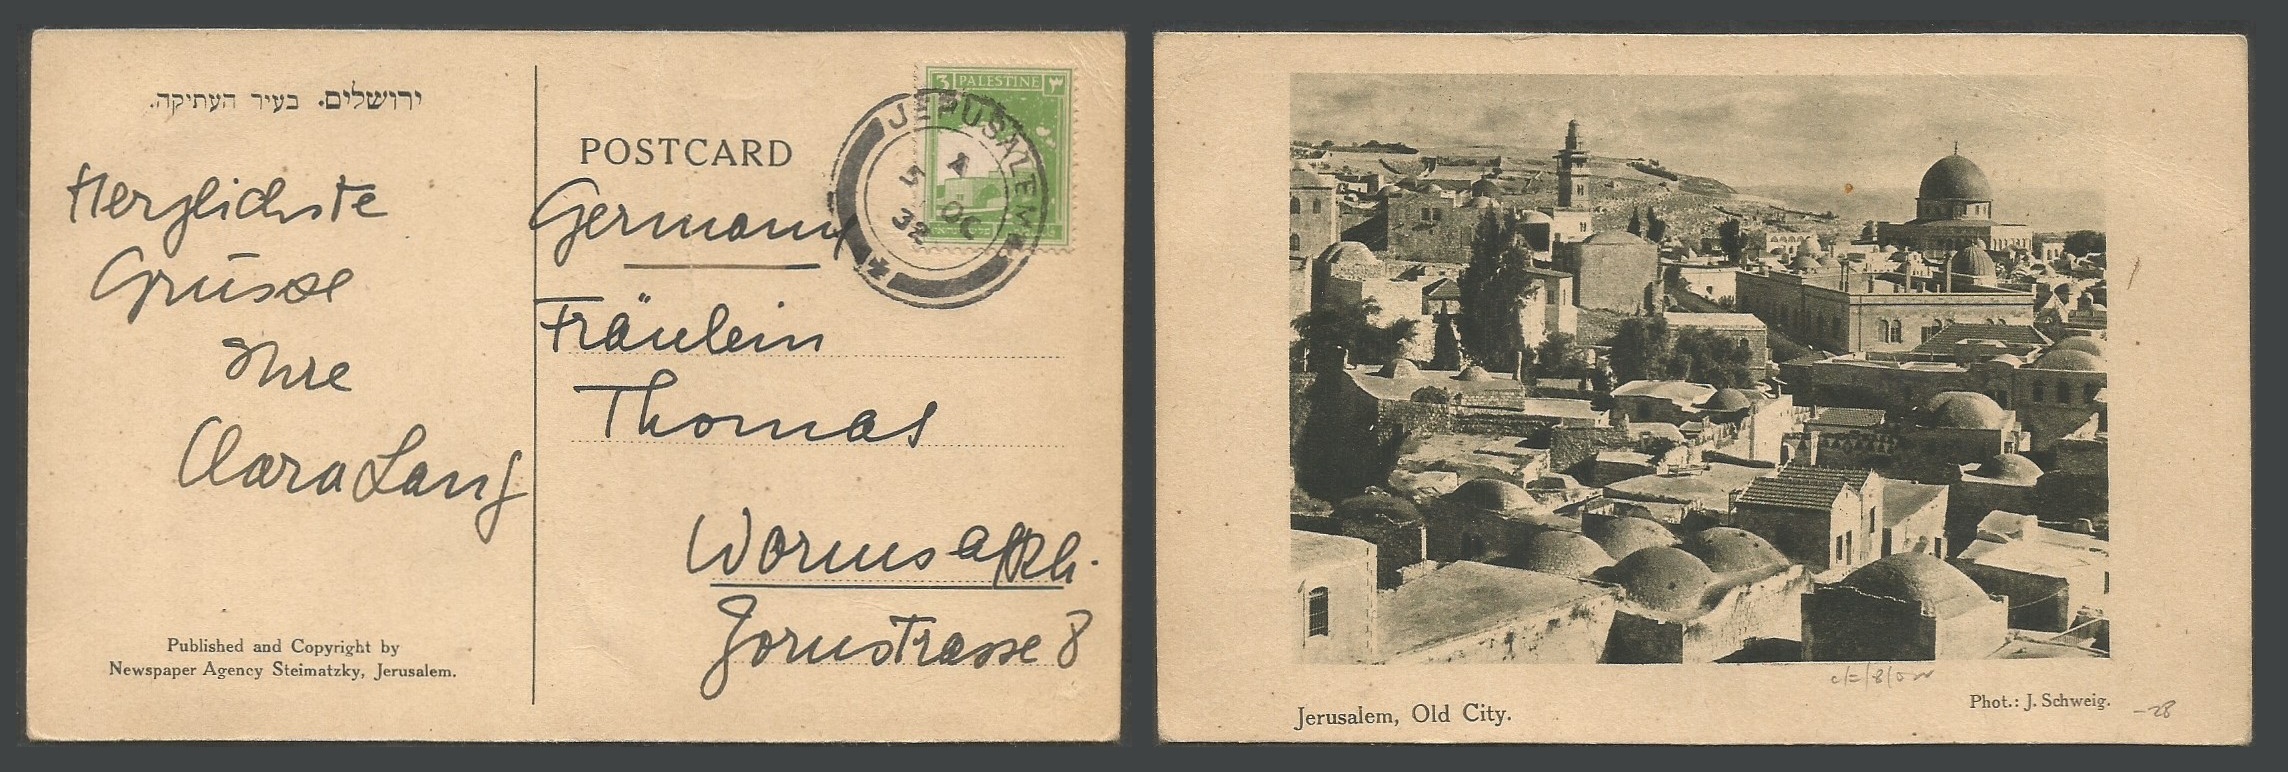 ירושלים. בעיר העתיקה.
Herzlichste
Grüsse
Ihre
Clara Lang
Published and Copyright by
Newspaper Agency Steimatzky, Jerusalem.
POSTCARD
3 PALESTINE ٣
JERUSALEM
A
5 OC
32
Germany
Fräulein
Thomas
Worms a/Rh.
Jornstrasse 8
Jerusalem, Old City.
Phot.: J. Schweig.
-28